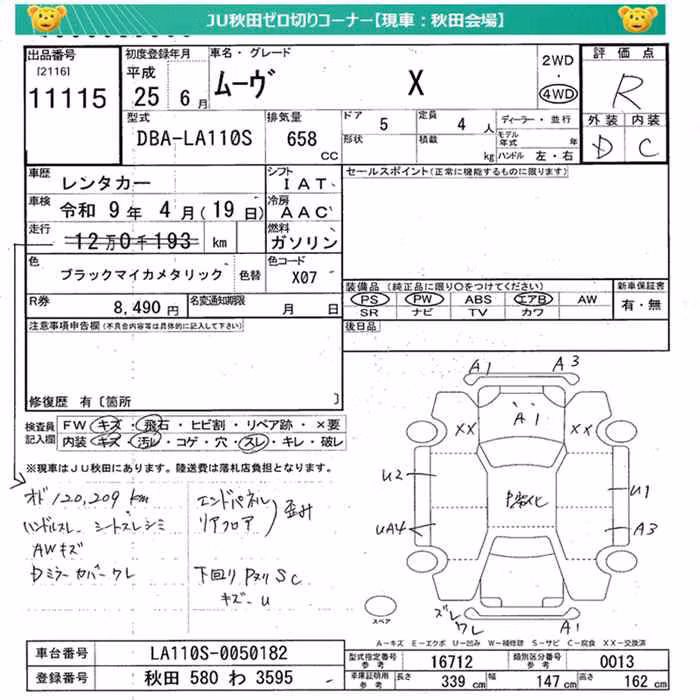 JU秋田ゼロ切りコーナー【現車：秋田会場】
出品番号 初度登録年月 車名・グレード 2WD 評価点
[2116] 平成 ムーヴ X ・ R
11115 25 6月 4WD 外装 内装
D C
型式 排気量 ドア 5 定員 4人 ディーラー・並行
DBA-LA110S 658cc 形状 積載 kg モデル年式 年
ハンドル 左・右
車歴 レンタカー シフト IAT セールスポイント(正常に機能するものに限ります)
車検 令和 9年 4月(19日) 冷房 AAC
走行 12万0千193 km 燃料 ガソリン
色 ブラックマイカメタリック 色替 色コード X07
装備品(純正品に限り○をつけてください) 新車保証書
R券 8,490円 名変通知期限 月 日 PS PW ABS エアB AW 有・無
SR ナビ TV カワ
注意事項申告欄(不具合内容等は具体的に記入して下さい) 後日品
修復歴 有〔箇所 〕
検査員記入欄 FW キズ・飛石・ヒビ割・リペア跡・×要
内装 キズ・汚レ・コゲ・穴・スレ・キレ・破レ
※現車はJU秋田にあります。陸送費は落札店負担となります。
オド120,209km エンドパネル
ハンドルスレ シートスレシミ リアフロア 歪ミ
AWキズ
Dミラーカバーワレ 下回りPヌリSC
キズ-U
A1 A3
A1
XX XX
U2 U1
UA4 A3
ズレ
ワレ A1
スペア
A-キズ E-エクボ U-凹み W-補修跡 S-サビ C-腐食 XX-交換済
車台番号 LA110S-0050182 型式指定番号参考 16712 類別区分番号参考 0013
登録番号 秋田 580 わ 3595 車庫証明用参考 長さ 339cm 幅 147cm 高さ 162cm